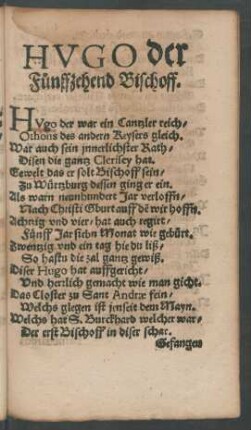 HVGO der
Fünffzehend Bischoff.
HVgo der war ein Cantzler reich/
Othons des andern Keysers gleich.
War auch sein jnnerlichster Rath/
Disen die gantz Clerisey hat.
Gewelt das er solt Bischoff sein/
Zu Würtzburg dessen ging er ein.
Als warn neunhundert Jar verloffn/
Nach Christi Gburt auff dē wir hoffn.
Achtzig vnd vier/ hat auch regirt/
Fünff Jar zehn Monat wie gebürt.
Zwentzig vnd ein tag hie du liß/
So hastu die zal gantz gewiß.
Diser Hugo hat auffgericht/
Vnd herrlich gemacht wie man gicht.
Das Closter zu Sant Andræ fein/
Welchs glegen ist jenseit dem Mayn.
Welchs hat S. Burckhard welcher war/
Der erst Bischoff in diser schar.
Gefangen